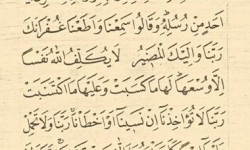 اَحَدٍ مِنْ رُسُلِهٖ وَقَالُوا سَمِعْنَا وَاَطَعْنَا غُفْرَانَكَ
رَبَّنَا وَاِلَيْكَ الْمَصٖيرُ لَا يُكَلِّفُ اللّٰهُ نَفْسًا
اِلَّا وُسْعَهَا لَهَا مَا كَسَبَتْ وَعَلَيْهَا مَا اكْتَسَبَتْ
رَبَّنَا لَا تُؤَاخِذْنَا اِنْ نَسٖينَا اَوْ اَخْطَاْنَا رَبَّنَا وَلَا تَحْمِلْ